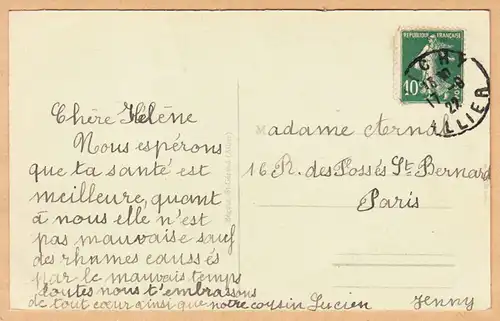 RÉPUBLIQUE FRANÇAISE
10c
17-9
22
ALLIER
Chère Hélène
Nous espérons
que ta santé est
meilleure, quant
à nous elle n'est
pas mauvaise sauf
des rhumes caussés
par le mauvais temps
toutes nous t'embrassons
de tout cœur ainsi que notre cousin Lucien
Jenny
Madame Arnal
16 R. des Fossés St Bernard
Paris